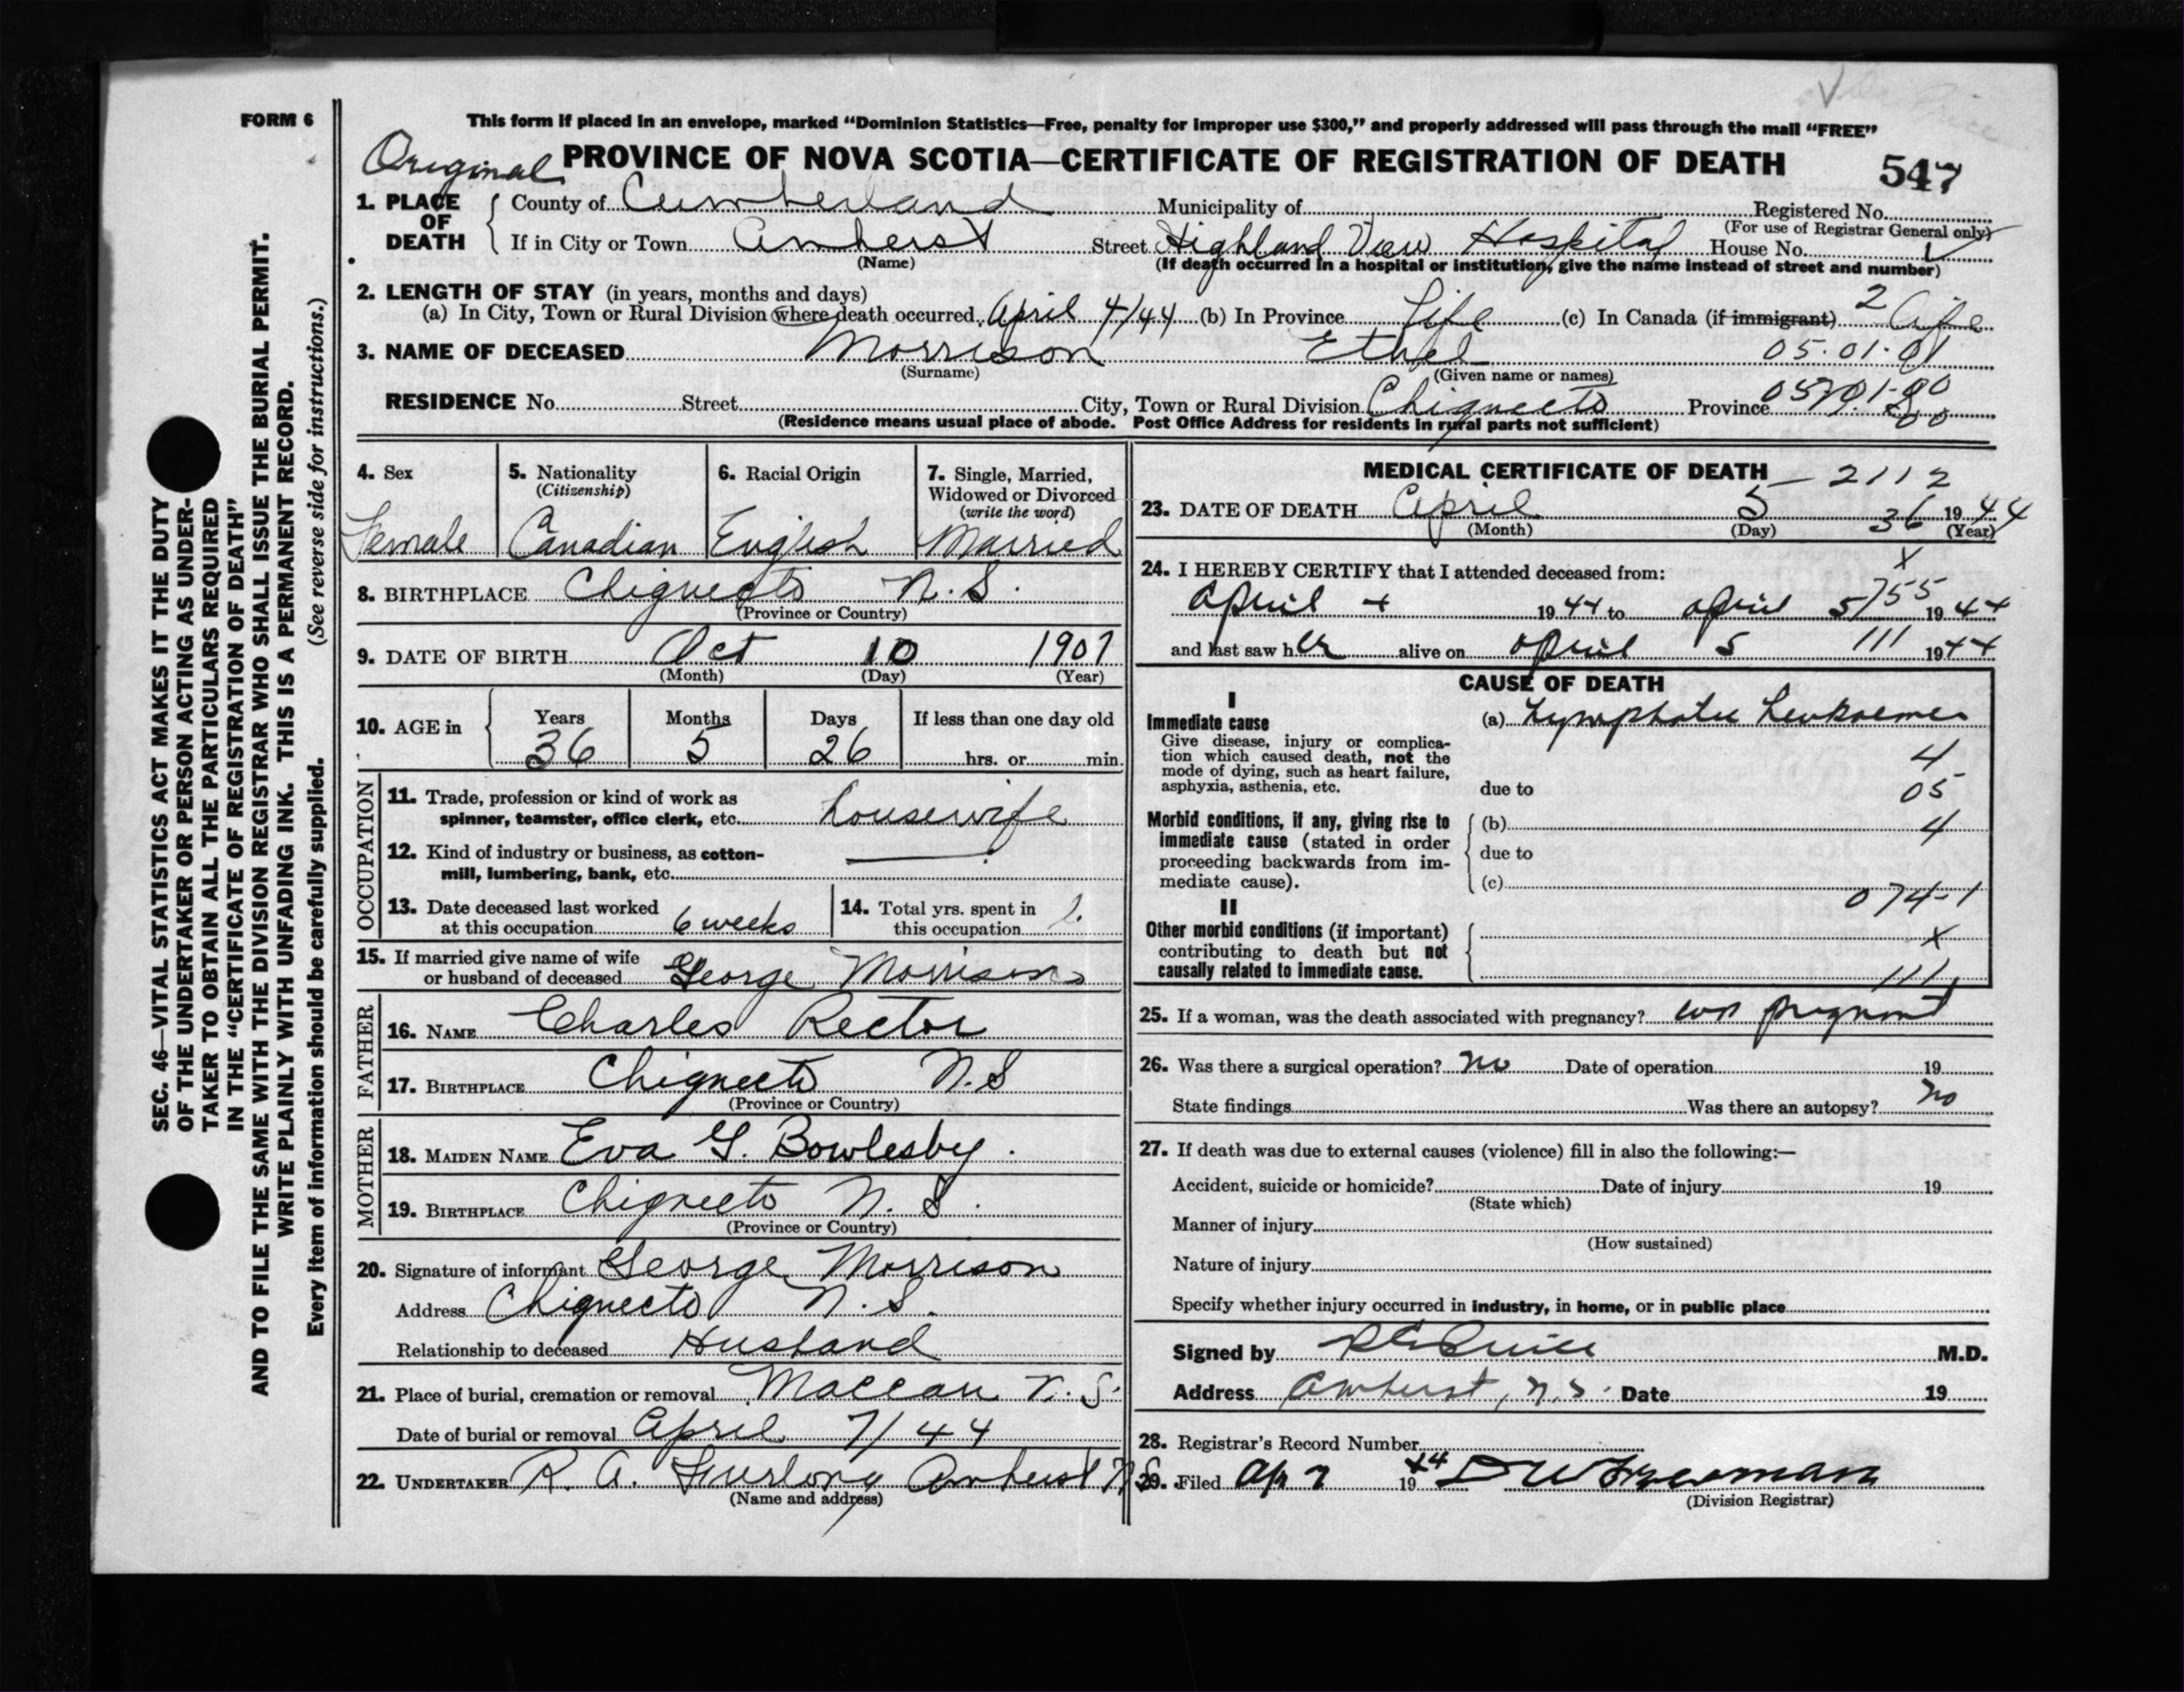 FORM 6
This form if placed in an envelope, marked “Dominion Statistics—Free, penalty for improper use $300,” and properly addressed will pass through the mail “FREE”
Original PROVINCE OF NOVA SCOTIA—CERTIFICATE OF REGISTRATION OF DEATH 547
1. PLACE OF DEATH
County of Cumberland Municipality of Registered No.
(For use of Registrar General only)
If in City or Town Amherst Street Highland View Hospital House No.
(Name) (If death occurred in a hospital or institution, give the name instead of street and number)
2. LENGTH OF STAY (in years, months and days)
(a) In City, Town or Rural Division where death occurred April 4/44 (b) In Province Life (c) In Canada (if immigrant) 2 Life
3. NAME OF DECEASED Morrison Ethel 05.01.01
(Surname) (Given name or names)
RESIDENCE No. Street City, Town or Rural Division Chignecto Province
(Residence means usual place of abode. Post Office Address for residents in rural parts not sufficient)
4. Sex
Female
5. Nationality
(Citizenship)
Canadian
6. Racial Origin
English
7. Single, Married,
Widowed or Divorced
(write the word)
Married
8. BIRTHPLACE Chignecto N.S.
(Province or Country)
9. DATE OF BIRTH Oct 10 1907
(Month) (Day) (Year)
10. AGE in
Years Months Days If less than one day old
36 5 26 hrs. or min.
OCCUPATION
11. Trade, profession or kind of work as
spinner, teamster, office clerk, etc. housewife
12. Kind of industry or business, as cotton-
mill, lumbering, bank, etc.
13. Date deceased last worked
at this occupation 6 weeks
14. Total yrs. spent in
this occupation
15. If married give name of wife
or husband of deceased George Morrison
FATHER
16. NAME Charles Rector
17. BIRTHPLACE Chignecto N.S
(Province or Country)
MOTHER
18. MAIDEN NAME Eva G. Bowlesby.
19. BIRTHPLACE Chignecto N.S.
(Province or Country)
20. Signature of informant George Morrison
Address Chignecto N.S.
Relationship to deceased Husband
21. Place of burial, cremation or removal Maccan N.S.
Date of burial or removal April 7/44
22. UNDERTAKER R. A. Furlong Amherst N.S.
(Name and address)
MEDICAL CERTIFICATE OF DEATH — 2112
23. DATE OF DEATH April 5 36 1944
(Month) (Day) (Year)
24. I HEREBY CERTIFY that I attended deceased from: X
April 4 1944 to April 5/55 1944
and last saw her alive on April 5 111 1944
CAUSE OF DEATH
I
Immediate cause
Give disease, injury or complica-
tion which caused death, not the
mode of dying, such as heart failure,
asphyxia, asthenia, etc.
(a) Lymphatic Leukaemia
4
due to 05
Morbid conditions, if any, giving rise to
immediate cause (stated in order
proceeding backwards from im-
mediate cause).
(b) 4
due to
(c)
074-1
II
Other morbid conditions (if important)
contributing to death but not
causally related to immediate cause.
X
111
25. If a woman, was the death associated with pregnancy? was pregnant
26. Was there a surgical operation? no Date of operation 19
State findings Was there an autopsy? no
27. If death was due to external causes (violence) fill in also the following:—
Accident, suicide or homicide? Date of injury 19
(State which)
Manner of injury
(How sustained)
Nature of injury
Specify whether injury occurred in industry, in home, or in public place
Signed by M.D.
Address Amherst, N.S. Date 19
28. Registrar's Record Number
29. Filed Apr 7 1944
(Division Registrar)
SEC. 46—VITAL STATISTICS ACT MAKES IT THE DUTY
OF THE UNDERTAKER OR PERSON ACTING AS UNDER-
TAKER TO OBTAIN ALL THE PARTICULARS REQUIRED
IN THE “CERTIFICATE OF REGISTRATION OF DEATH”
AND TO FILE THE SAME WITH THE DIVISION REGISTRAR WHO SHALL ISSUE THE BURIAL PERMIT.
WRITE PLAINLY WITH UNFADING INK. THIS IS A PERMANENT RECORD.
Every item of information should be carefully supplied. (See reverse side for instructions.)